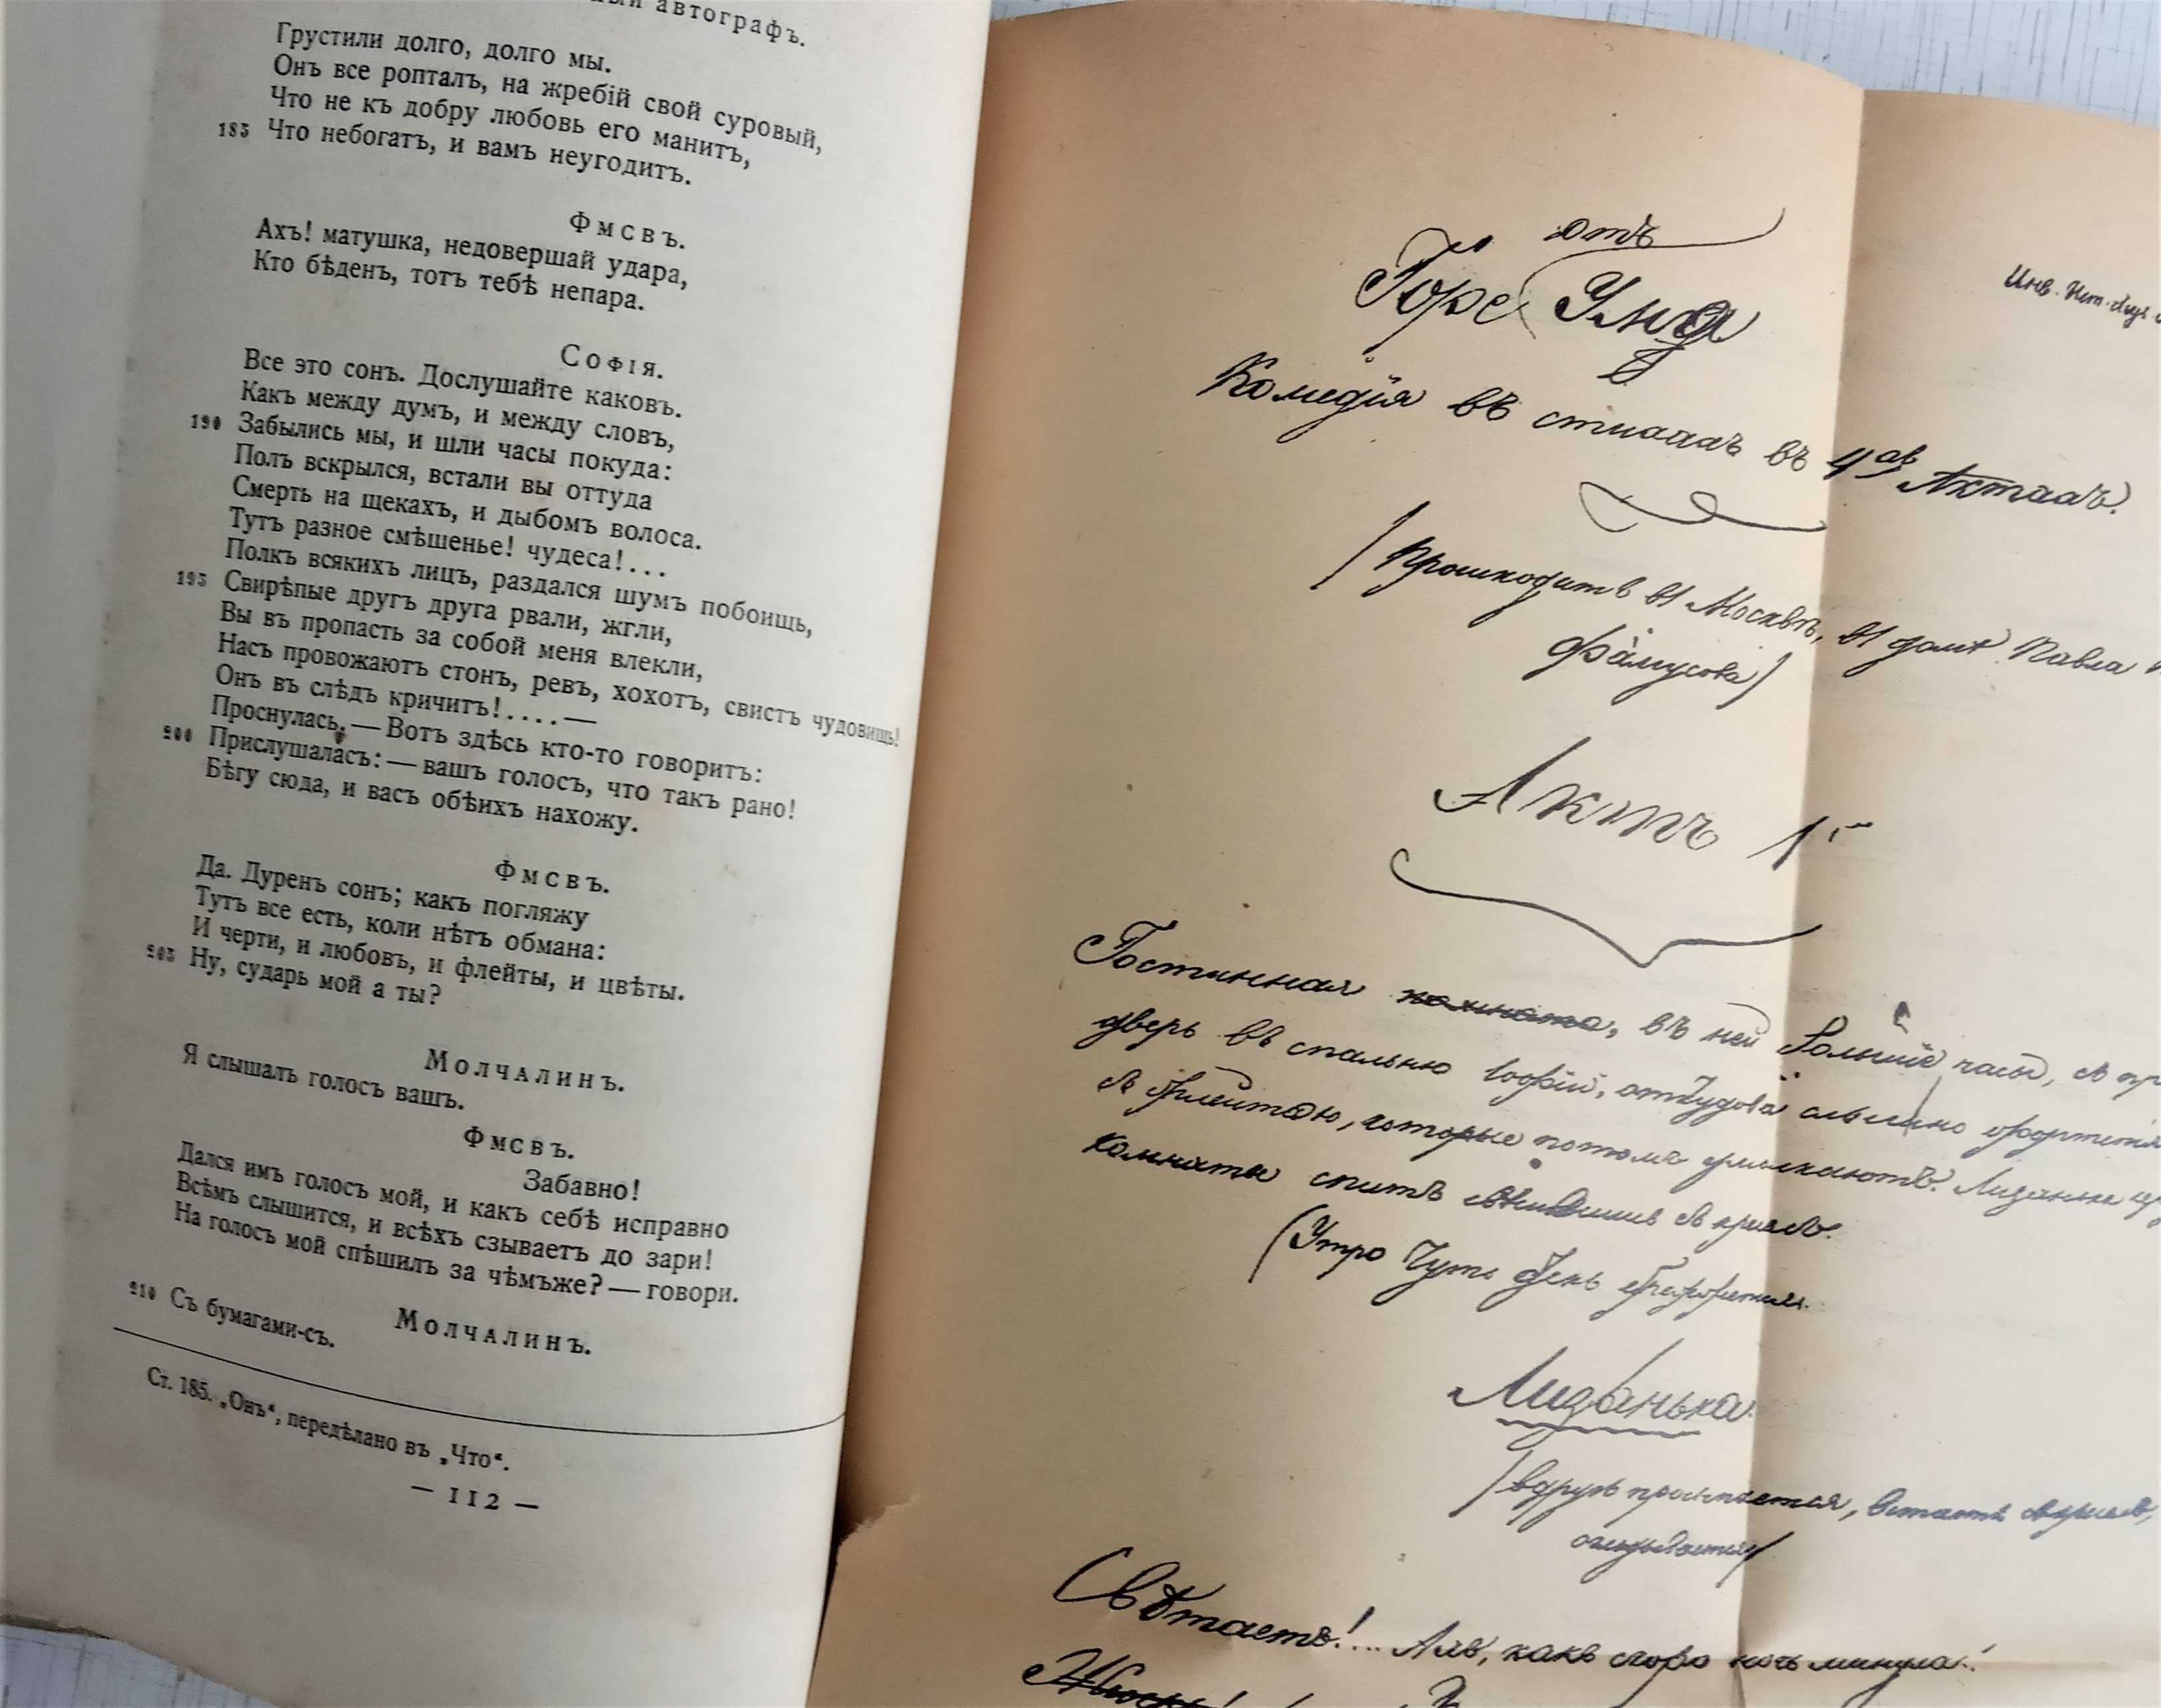 автографъ.
Грустили долго, долго мы.
Онъ все ропталъ, на жребій свой суровый,
Что не къ добру любовь его манитъ,
185 Что небогатъ, и вамъ неугодитъ.
Фмсвъ.
Ахъ! матушка, недовершай удара,
Кто бѣденъ, тотъ тебѣ непара.
Софія.
Все это сонъ. Дослушайте каковъ.
Какъ между думъ, и между словъ,
190 Забылись мы, и шли часы покуда:
Полъ вскрылся, встали вы оттуда
Смерть на щекахъ, и дыбомъ волоса.
Тутъ разное смѣшенье! чудеса!...
Полкъ всякихъ лицъ, раздался шумъ побоищь,
195 Свирѣпые другъ друга рвали, жгли,
Вы въ пропасть за собой меня влекли,
Насъ провожаютъ стонъ, ревъ, хохотъ, свистъ чудовищь!
Онъ въ слѣдъ кричитъ!....—
Проснулась.—Вотъ здѣсь кто-то говоритъ:
200 Прислушалась:—вашъ голосъ, что такъ рано!
Бѣгу сюда, и васъ обѣихъ нахожу.
Фмсвъ.
Да. Дуренъ сонъ; какъ погляжу
Тутъ все есть, коли нѣтъ обмана:
И черти, и любовъ, и флейты, и цвѣты.
205 Ну, сударь мой а ты?
Молчалинъ.
Я слышалъ голосъ вашъ.
Фмсвъ.
Забавно!
Дался имъ голосъ мой, и какъ себѣ исправно
Всѣмъ слышится, и всѣхъ сзываетъ до зари!
На голосъ мой спѣшилъ за чѣмъже?—говори.
Молчалинъ.
210 Съ бумагами-съ.
Ст. 185. „Онъ“, передѣлано въ „Что“.
— 112 —
отъ
Горе Ума
Комедія въ стихахъ въ 4хъ Актахъ.
(Происходитъ въ Москвѣ, въ домѣ Павла
Фамусова)
Актъ 1й
Гостинная комната, въ ней большіе часы, съ
дверь въ спальню Софіи, откудова слышно
съ флейтою, которые потомъ умолкаютъ. Лизанька
комнаты спитъ свѣсившись съ креслъ.
(Утро чуть день брезжится.
Лизанька.
(вдругъ просыпается, встаетъ съ креслъ,
оглядывается)
Свѣтаетъ!... Ахъ, какъ скоро ночь минула!